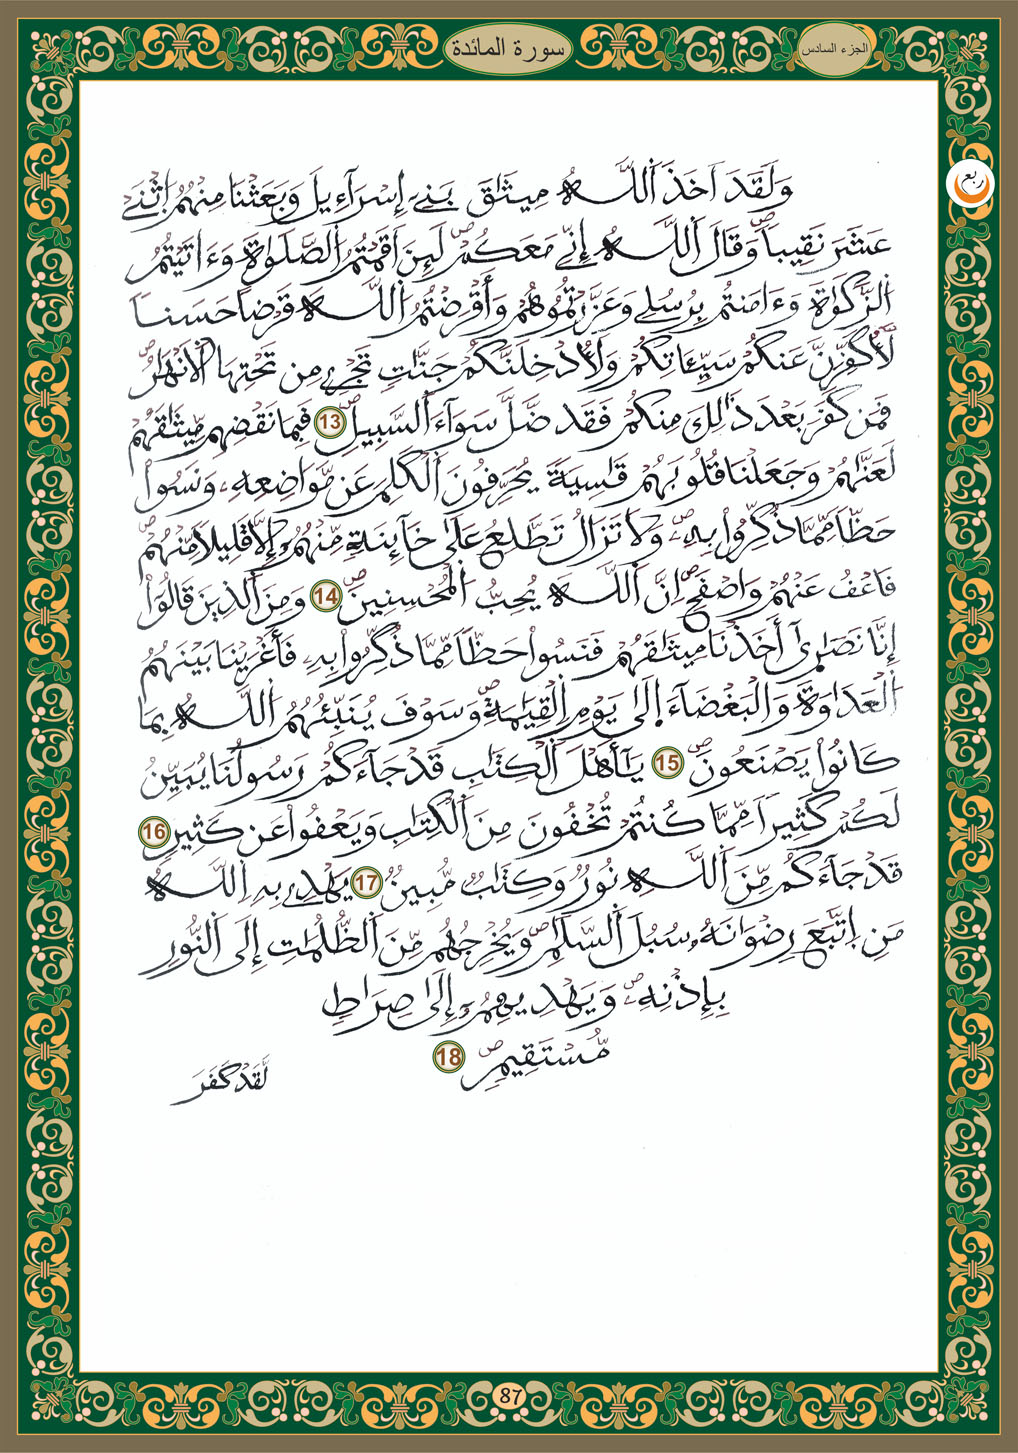 سورة المائدة
الجزء السادس
ربع
وَلَقَدَ اَخَذَ اَ۬للَّهُ مِيثَٰقَ بَنِےٓ إِسْرَآءِيلَ وَبَعَثْنَا مِنْهُمُ اُ۪ثْنَےْ
عَشَرَ نَقِيباٗۖ وَقَالَ اَ۬للَّهُ إِنِّے مَعَكُمْۖ لَئِنَ اَقَمْتُمُ اُ۬لصَّلَوٰةَ وَءَاتَيْتُمُ
اُ۬لزَّكَوٰةَ وَءَامَنتُم بِرُسُلِے وَعَزَّرْتُمُوهُمْ وَأَقْرَضْتُمُ اُ۬للَّهَ قَرْضاً حَسَناٗ
لَّأُكَفِّرَنَّ عَنكُمْ سَيِّـَٔاتِكُمْ وَلَأُدْخِلَنَّكُمْ جَنَّٰتٖ تَجْرِے مِن تَحْتِهَا اَ۬لَانْهَٰرُۖ
فَمَن كَفَرَ بَعْدَ ذَٰلِكَ مِنكُمْ فَقَد ضَّلَّ سَوَآءَ اَ۬لسَّبِيلِۖ 13 فَبِمَا نَقْضِهِم مِّيثَٰقَهُمْ
لَعَنَّٰهُمْ وَجَعَلْنَا قُلُوبَهُمْ قَٰسِيَةٗ يُحَرِّفُونَ اَ۬لْكَلِمَ عَن مَّوَاضِعِهِۦ وَنَسُواْ
حَظّاٗ مِّمَّا ذُكِّرُواْ بِهِۦۖ وَلَا تَزَالُ تَطَّلِعُ عَلَىٰ خَآئِنَةٖ مِّنْهُمُۥٓ إِلَّا قَلِيلاٗ مِّنْهُمْۖ
فَاعْفُ عَنْهُمْ وَاصْفَحِۖ اِنَّ اَ۬للَّهَ يُحِبُّ اُ۬لْمُحْسِنِينَۖ 14 وَمِنَ اَ۬لذِينَ قَالُوٓاْ
إِنَّا نَصَٰرَىٰٓ أَخَذْنَا مِيثَٰقَهُمْ فَنَسُواْ حَظّاٗ مِّمَّا ذُكِّرُواْ بِهِۦ فَأَغْرَيْنَا بَيْنَهُمُ
اُ۬لْعَدَاوَةَ وَالْبَغْضَآءَ إِلَىٰ يَوْمِ اِ۬لْقِيَٰمَةِۖ وَسَوْفَ يُنَبِّئُهُمُ اُ۬للَّهُ بِمَا
كَانُواْ يَصْنَعُونَۖ 15 يَٰٓأَهْلَ اَ۬لْكِتَٰبِ قَدْ جَآءَكُمْ رَسُولُنَا يُبَيِّنُ
لَكُمْ كَثِيراٗ مِّمَّا كُنتُمْ تُخْفُونَ مِنَ اَ۬لْكِتَٰبِ وَيَعْفُواْ عَن كَثِيرٖ 16
قَدْ جَآءَكُم مِّنَ اَ۬للَّهِ نُورٞ وَكِتَٰبٞ مُّبِينٞ 17 يَهْدِے بِهِ اِ۬للَّهُ
مَنِ اِ۪تَّبَعَ رِضْوَٰنَهُۥ سُبُلَ اَ۬لسَّلَٰمِۖ وَيُخْرِجُهُم مِّنَ اَ۬لظُّلُمَٰتِ إِلَى اَ۬لنُّورِ
بِإِذْنِهِۦۖ وَيَهْدِيهِمُۥٓ إِلَىٰ صِرَٰطٖ
مُّسْتَقِيمٖۖ 18
لَّقَدْ كَفَرَ
87